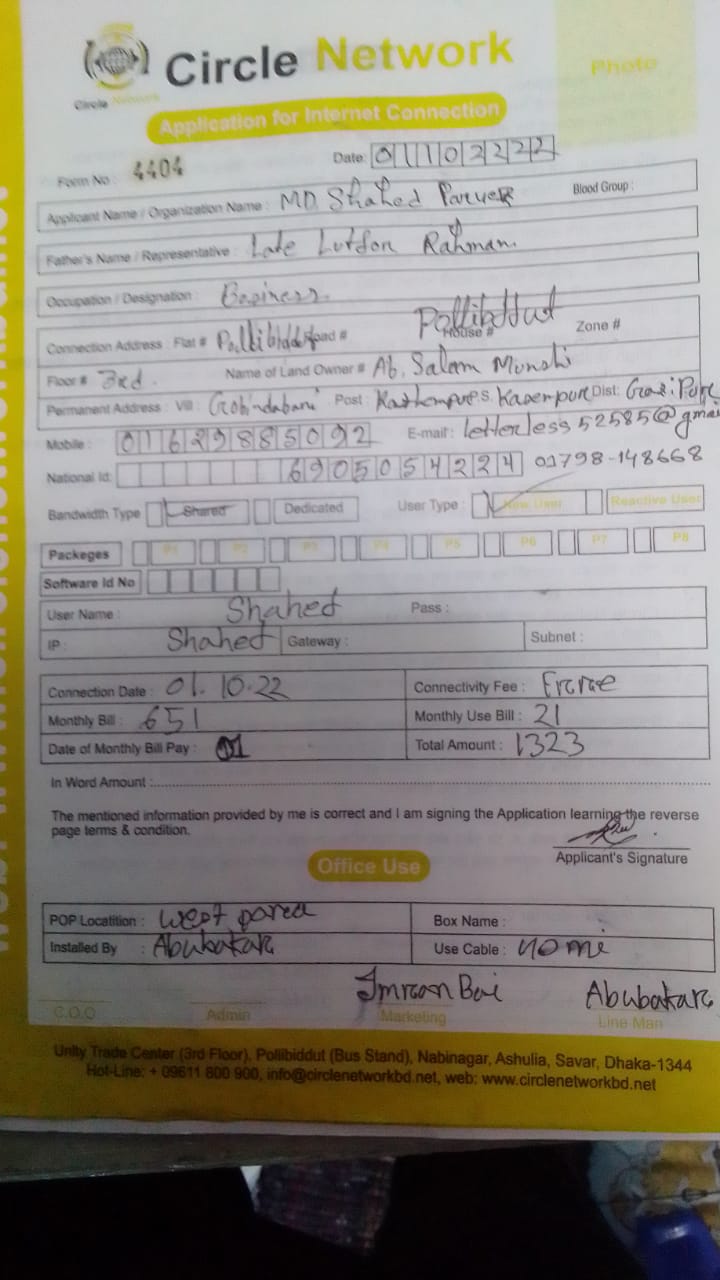 Circle Network
Photo
Circle Network
Application for Internet Connection
Form No : 4404 Date: 01102222
Applicant Name / Organization Name : MD. Shahed Parvez Blood Group :
Father's Name / Representative : Late Lutfor Rahman
Occupation / Designation : Business
Connection Address : Flat # Pollibiddut Road # House # Pollibiddut Zone #
Floor # 3rd. Name of Land Owner # Ab. Salam Munshi
Permanent Address : Vill : Gobindabari Post : P.S. Dist:
Mobile : 01629885092 E-mail : letterless52585@gmai
National Id: 6905054224 01798-148668
Bandwidth Type Shared Dedicated User Type : New User Reactive User
Packeges P1 P2 P3 P4 P5 P6 P7 P8
Software Id No
User Name : Shahed Pass :
IP : Shahed Gateway : Subnet :
Connection Date : 01.10.22 Connectivity Fee :
Monthly Bill : 651 Monthly Use Bill : 21
Date of Monthly Bill Pay : 01 Total Amount : 1323
In Word Amount :
The mentioned information provided by me is correct and I am signing the Application learning the reverse
page terms & condition.
Applicant's Signature
Office Use
POP Locatition : West parea Box Name :
Installed By : Abubakar Use Cable :
Imran Bai Abubakar
C.O.O Admin Marketing Line Man
Unity Trade Center (3rd Floor), Pollibiddut (Bus Stand), Nabinagar, Ashulia, Savar, Dhaka-1344
Hot-Line: + 09611 800 900, info@circlenetworkbd.net, web: www.circlenetworkbd.net